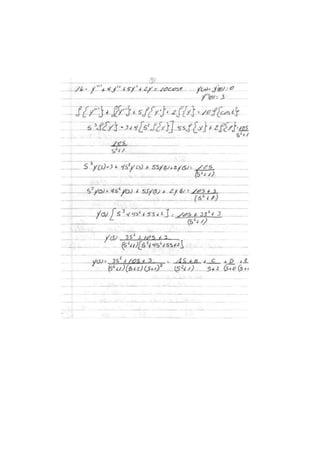 16- y''' + 4y'' + 5y' + 2y = 10cost y(0)= y'(0)=0
y''(0)= 3
ℒ{y'''} + ℒ{y''} + 5ℒ{y'} + 2ℒ{y} = 10ℒ{cost}
s³ℒ{y} - 3 + 4[s²ℒ{y}] 5sℒ{y} + 2ℒ{y} = 10s
s²+1
10s
s²+1
s³y(s) - 3 + 4s²y(s) + 5sy(s) + 2y(s) = 10s
(s²+1)
s³y(s) + 4s²y(s) + 5sy(s) + 2y(s) = 10s + 3
(s²+1)
y(s) [s³ + 4s² + 5s + 2] = 10s + 3s² + 3
(s²+1)
y(s) 3s² + 10s + 3
(s²+1)[s³+4s²+5s+2]
y(s)= 3s² + 10s + 3 = As+B + C + D +
(s²+1)(s+2)(s+1)² (s²+1) s+2 (s+1) (s+